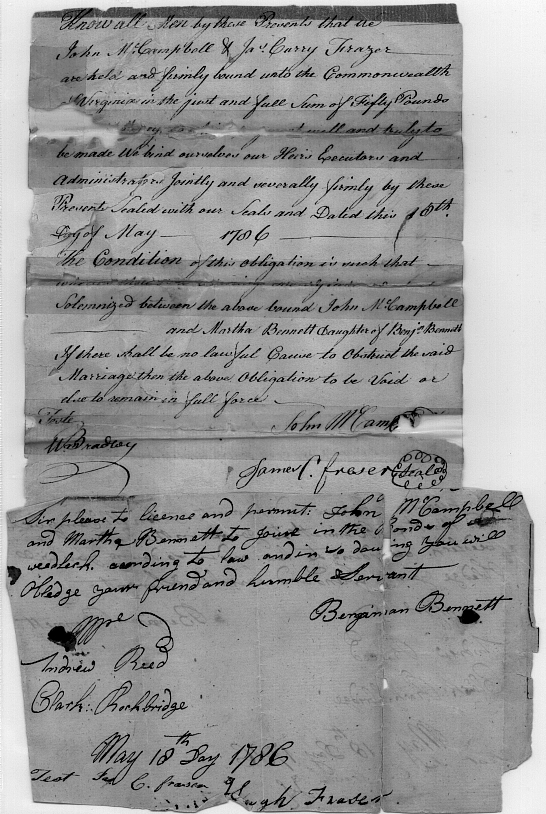 Know all Men by these Presents that we
John McCampbell & Jas Curry Frazer
are held and firmly bound unto the Commonwealth
Virginia in the just and full Sum of Fifty Pounds
well and truly to
be made We bind ourselves our Heirs Executors and
Administrators Jointly and severally firmly by these
Presents Sealed with our Seals and Dated this 18th
Day of May 1786
The Condition of this obligation is such that
Solemnized between the above bound John McCampbell
and Martha Bennett Daughter of Benja Bennett
If there shall be no lawful Cause to Obstruct the said
Marriage then the above Obligation to be Void or
else to remain in full force
Teste
John McCamp
Wm Bradley
James C. fraser Seal
Sir please to license and permit John McCampbell
and Martha Bennett to Joine in the Bonds of
wedlock acording to law and in so doing you will
Obledge your friend and humble Servant
Bengiman Bennett
Andrew Reed
Clark: Rockbridge
May 18th Day 1786
Test Jas C. fraser
Hugh Fraser